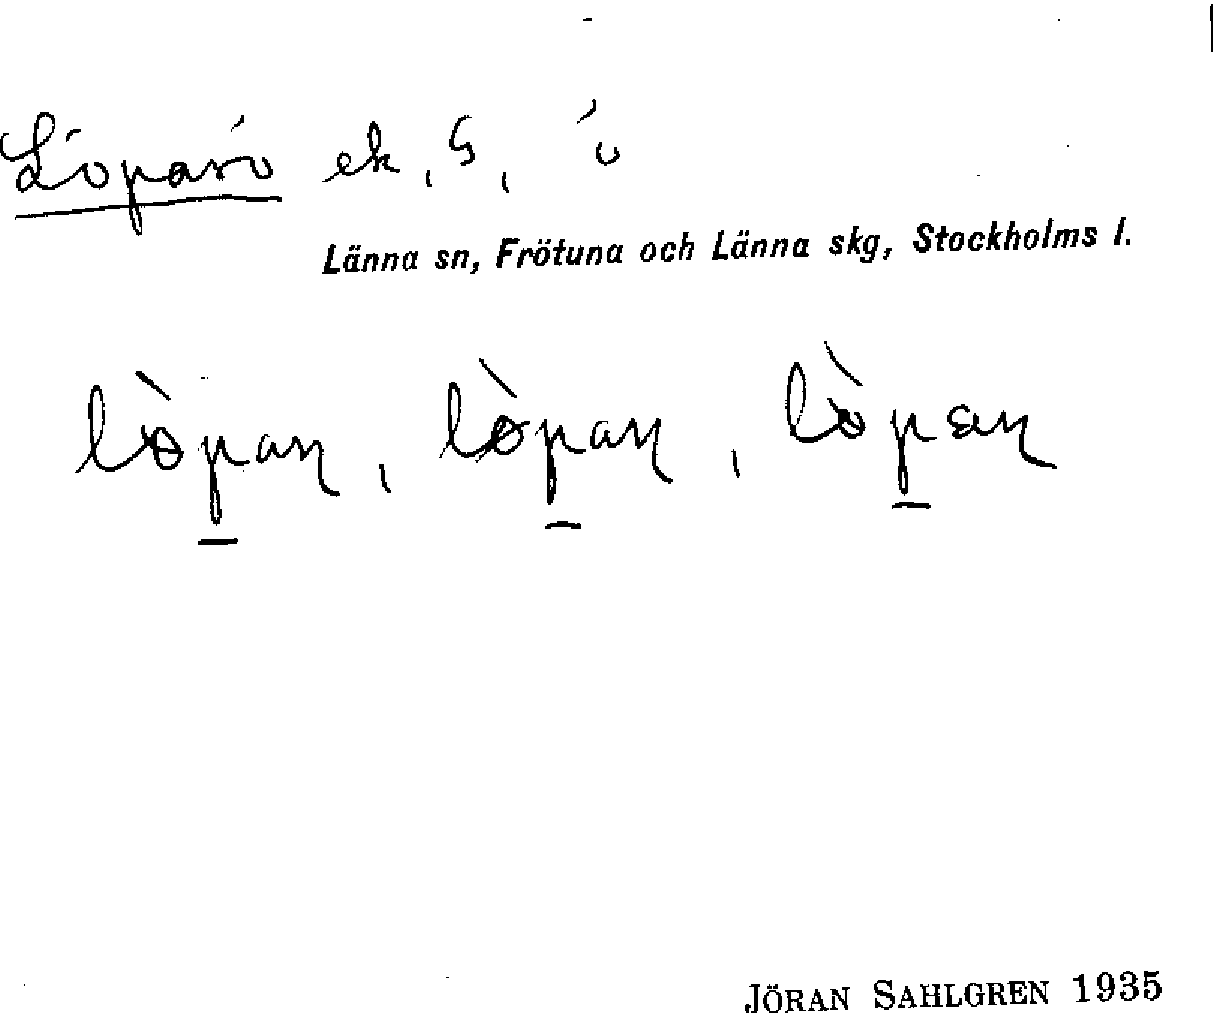 Löparö ek, G, ö
Länna sn, Frötuna och Länna skg, Stockholms l.
lòpan, lòpan, lòpan
JÖRAN SAHLGREN 1935